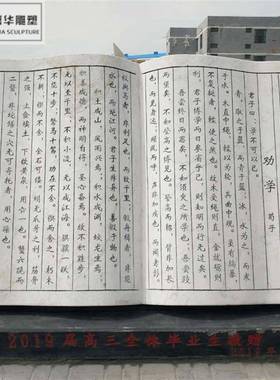 华雕塑
A SCULPTURE
劝学
荀子
君子曰:学不可以已。
青,取之于蓝,而青于蓝;冰,水为之,而寒
于水。木直中绳,輮以为轮,其曲中规。虽有槁暴,
不复挺者,輮使之然也。故木受绳则直,金就砺则
利,君子博学而日参省乎己,则知明而行无过矣。
吾尝终日而思矣,不如须臾之所学也;吾尝跂
而望矣,不如登高之博见也。登高而招,臂非加长
也,而见者远;顺风而呼,声非加疾也,而闻者彰。
假舆马者,非利足也,而致千里;假舟楫者,非能
水也,而绝江河。君子生非异也,善假于物也。
积土成山,风雨兴焉;积水成渊,蛟龙生焉;
积善成德,而神明自得,圣心备焉。故不积跬步,
无以至千里;不积小流,无以成江海。骐骥一跃,
不能十步;驽马十驾,功在不舍。锲而舍之,朽木
不折;锲而不舍,金石可镂。蚓无爪牙之利,筋骨
之强,上食埃土,下饮黄泉,用心一也。蟹六跪而
二螯,非蛇鳝之穴无可寄托者,用心躁也。
2019届高三全体毕业生敬赠